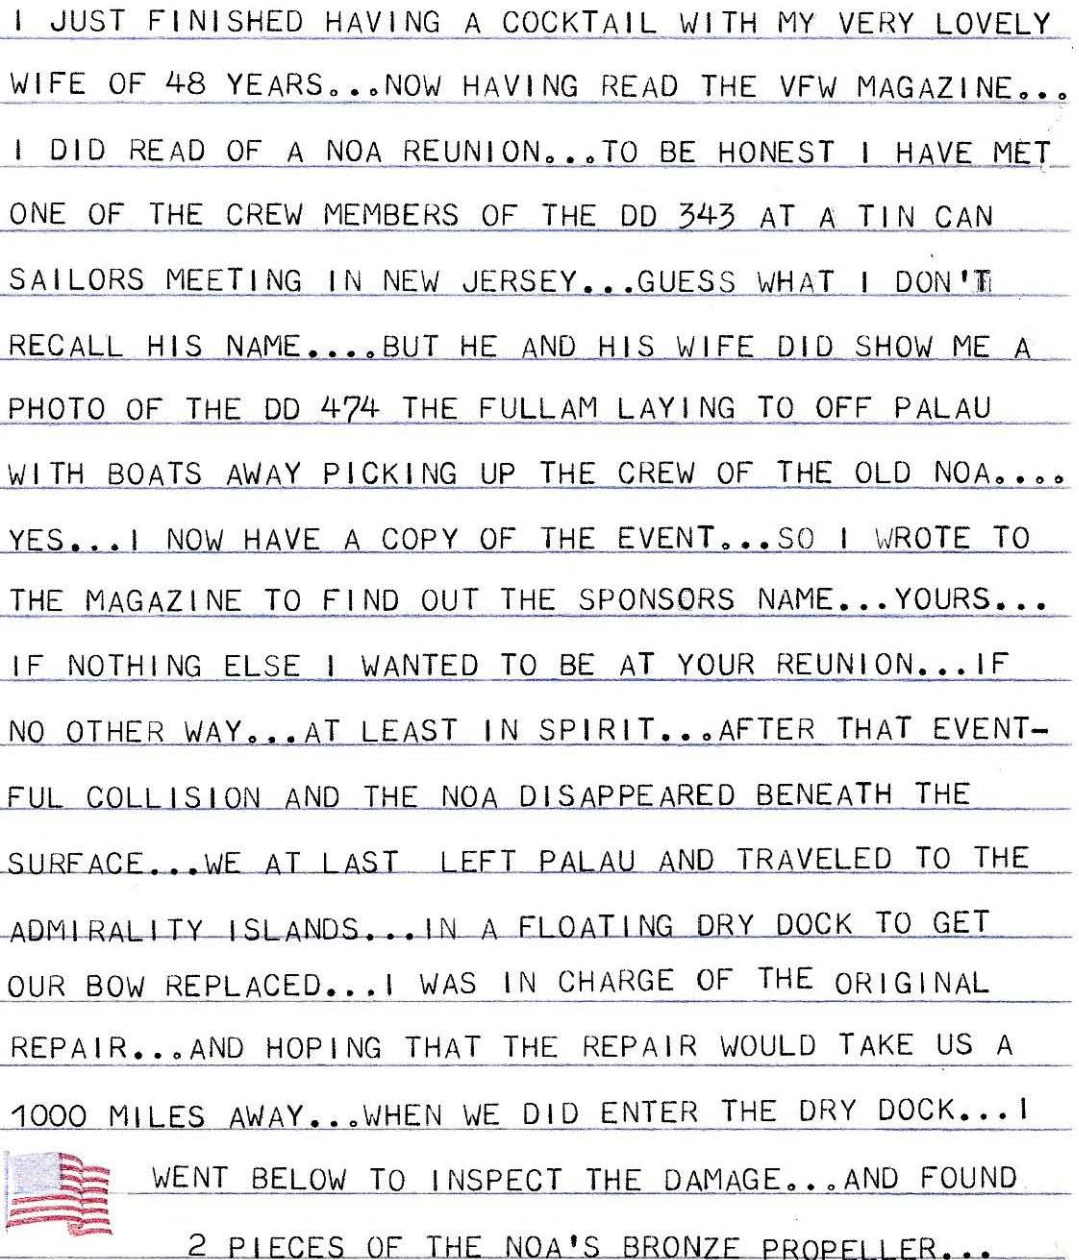 I JUST FINISHED HAVING A COCKTAIL WITH MY VERY LOVELY
WIFE OF 48 YEARS...NOW HAVING READ THE VFW MAGAZINE...
I DID READ OF A NOA REUNION...TO BE HONEST I HAVE MET
ONE OF THE CREW MEMBERS OF THE DD 343 AT A TIN CAN
SAILORS MEETING IN NEW JERSEY...GUESS WHAT I DON'T
RECALL HIS NAME....BUT HE AND HIS WIFE DID SHOW ME A
PHOTO OF THE DD 474 THE FULLAM LAYING TO OFF PALAU
WITH BOATS AWAY PICKING UP THE CREW OF THE OLD NOA....
YES...I NOW HAVE A COPY OF THE EVENT...SO I WROTE TO
THE MAGAZINE TO FIND OUT THE SPONSORS NAME...YOURS...
IF NOTHING ELSE I WANTED TO BE AT YOUR REUNION...IF
NO OTHER WAY...AT LEAST IN SPIRIT...AFTER THAT EVENT-
FUL COLLISION AND THE NOA DISAPPEARED BENEATH THE
SURFACE...WE AT LAST LEFT PALAU AND TRAVELED TO THE
ADMIRALITY ISLANDS...IN A FLOATING DRY DOCK TO GET
OUR BOW REPLACED...I WAS IN CHARGE OF THE ORIGINAL
REPAIR...AND HOPING THAT THE REPAIR WOULD TAKE US A
1000 MILES AWAY...WHEN WE DID ENTER THE DRY DOCK...I
WENT BELOW TO INSPECT THE DAMAGE...AND FOUND
2 PIECES OF THE NOA'S BRONZE PROPELLER...